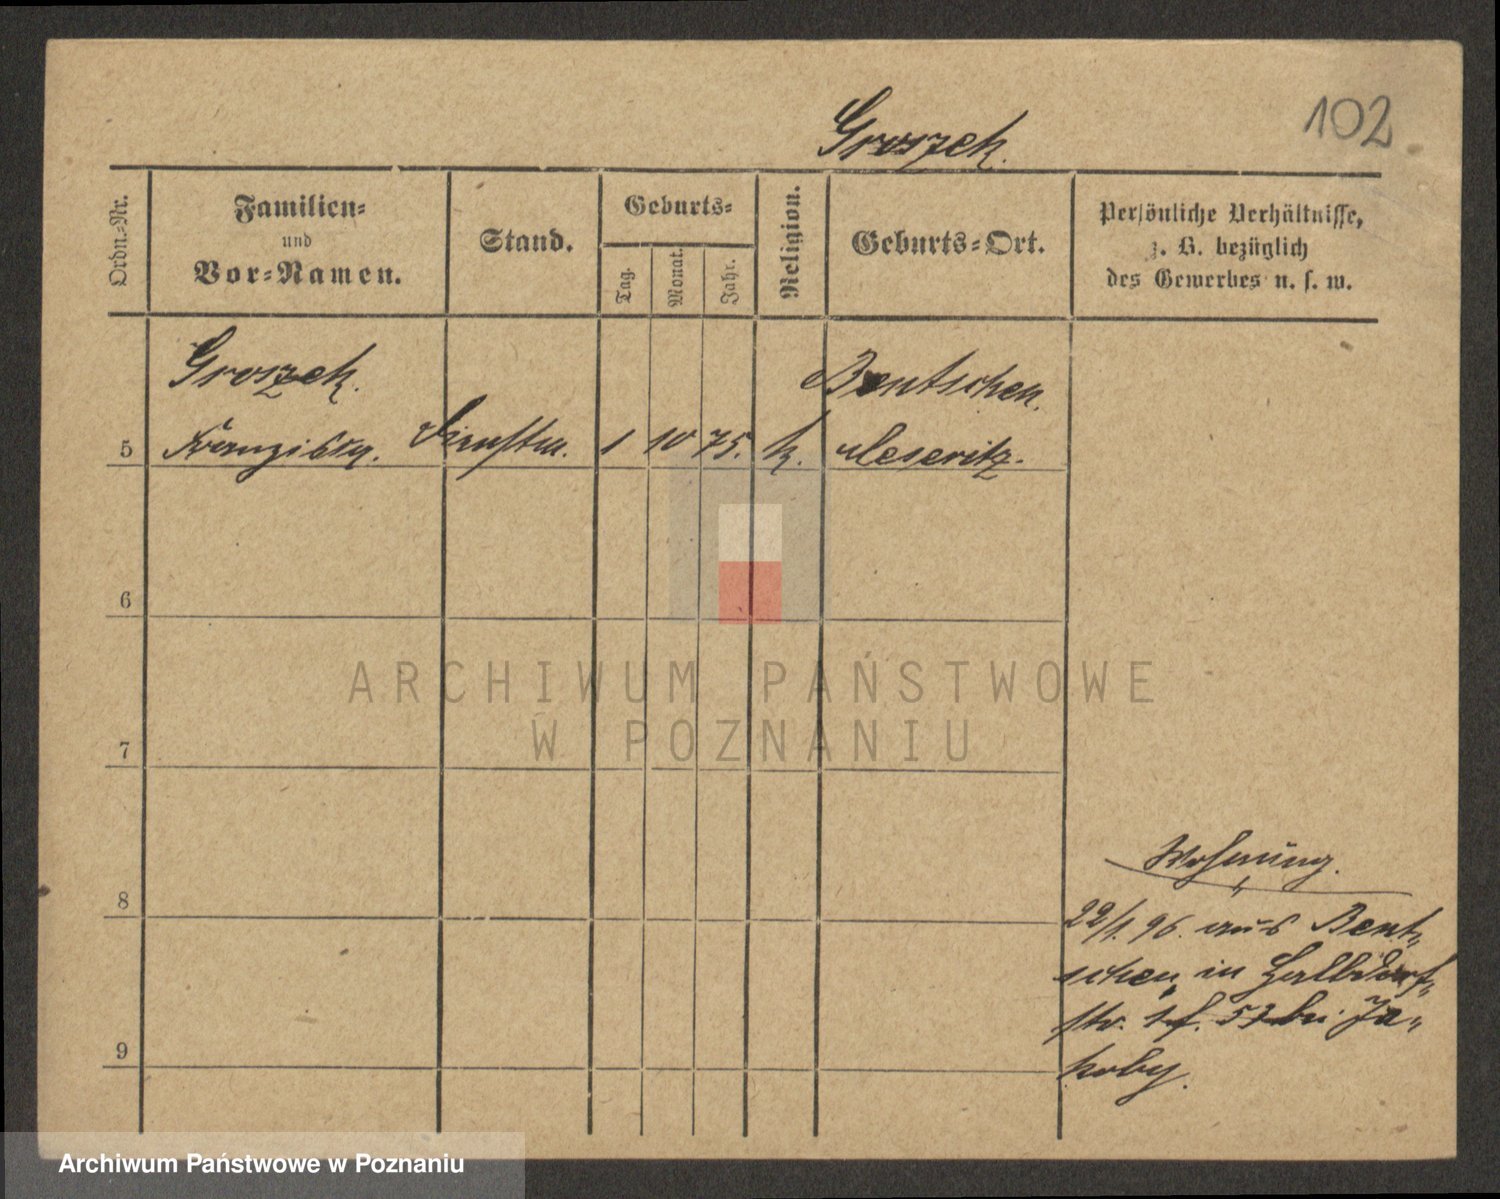 Groszek.
102
Ordn.-Nr.
Familien-
und
Vor-Namen.
Stand.
Geburts-
Tag.
Monat.
Jahr.
Religion.
Geburts-Ort.
Persönliche Verhältnisse,
z. B. bezüglich
des Gewerbes u. s. w.
Groszek.
Bentschen.
5
Franziska.
1
10
75.
k.
Meseritz.
6
ARCHIWUM PAŃSTWOWE
W POZNANIU
7
8
9
Wohnung.
22/1. 96. aus Bent-
schen, in Halbdorf-
str. 53 bei Ja-
koby.
Archiwum Państwowe w Poznaniu